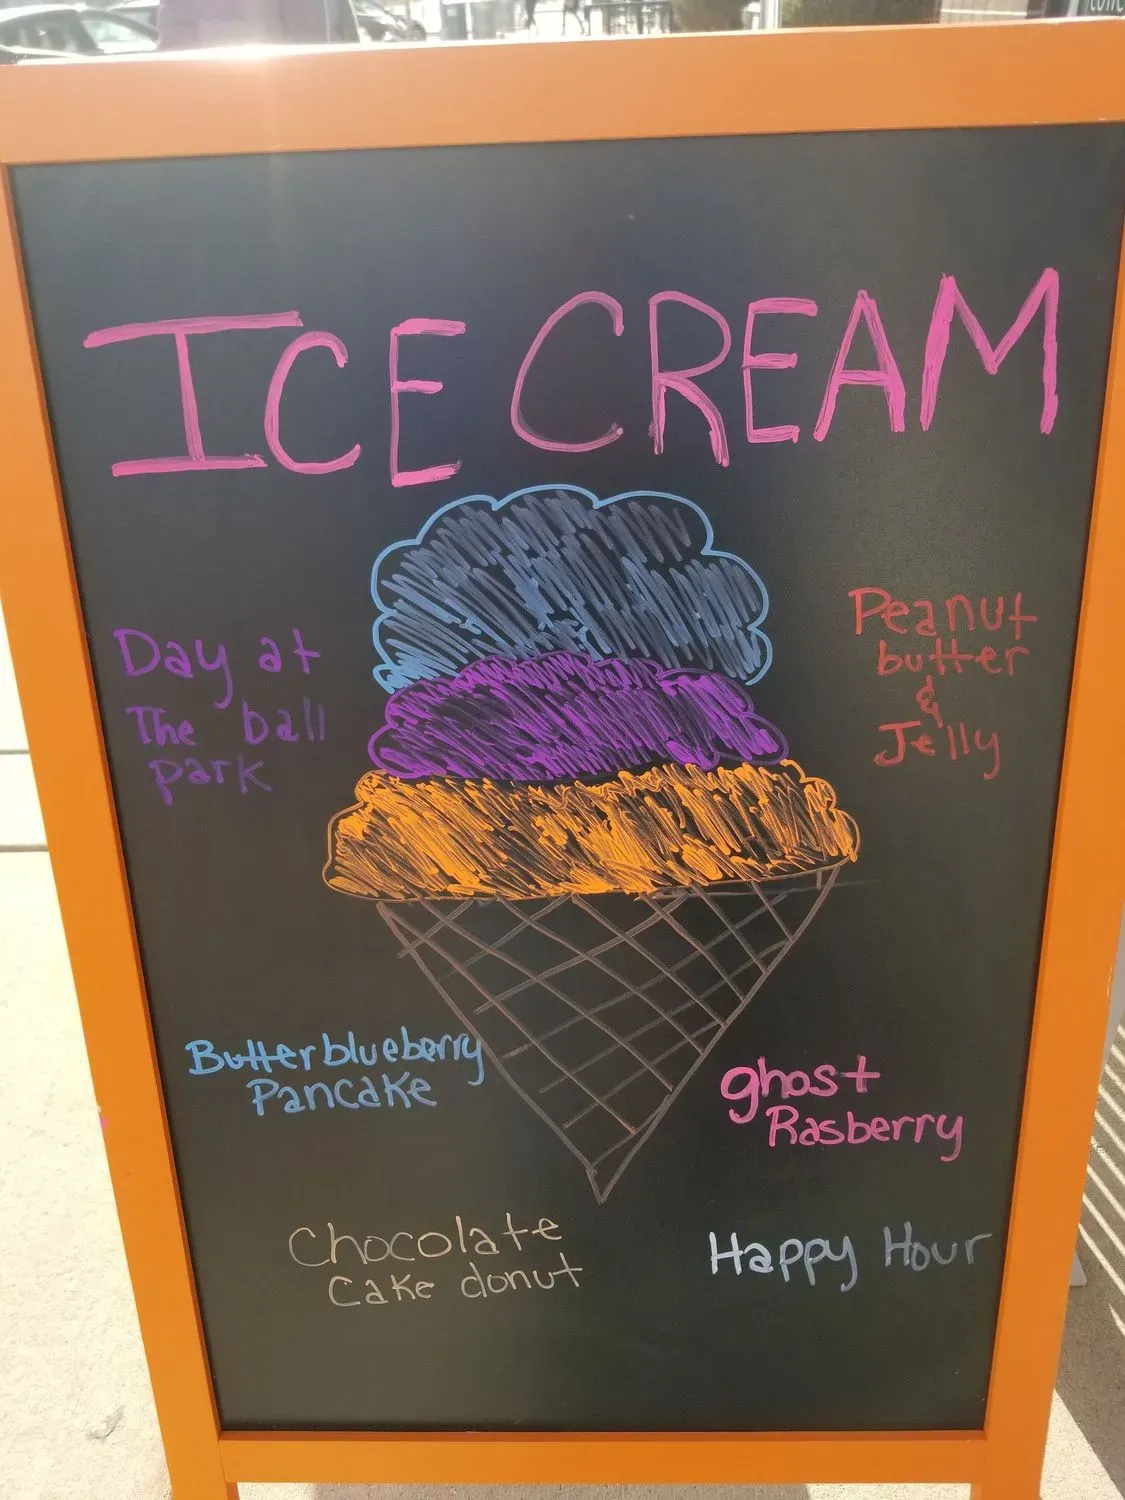 ICE CREAM
Day at
The ball
park
Peanut
butter
&
Jelly
Butterblueberry
Pancake
ghost
Rasberry
Chocolate
Cake donut
Happy Hour